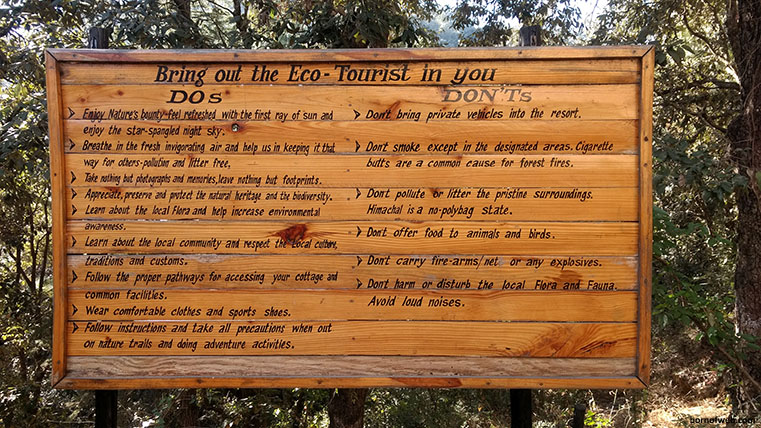 Bring out the Eco-Tourist in you
DOs
Enjoy Nature's bounty-feel refreshed with the first ray of sun and
enjoy the star-spangled night sky.
Breathe in the fresh invigorating air and help us in keeping it that
way for others-pollution and litter free.
Take nothing but photographs and memories, leave nothing but footprints.
Appreciate, preserve and protect the natural heritage and the biodiversity.
Learn about the local Flora and help increase environmental
awareness.
Learn about the local community and respect the local culture,
traditions and customs.
Follow the proper pathways for accessing your cottage and
common facilities.
Wear comfortable clothes and sports shoes.
Follow instructions and take all precautions when out
on nature trails and doing adventure activities.
DON'Ts
Don't bring private vehicles into the resort.
Don't smoke except in the designated areas. Cigarette
butts are a common cause for forest fires.
Don't pollute or litter the pristine surroundings.
Himachal is a no-polybag state.
Don't offer food to animals and birds.
Don't carry fire-arms/net or any explosives.
Don't harm or disturb the local Flora and Fauna.
Avoid loud noises.